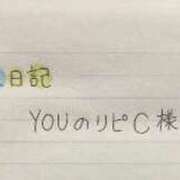 日記
YOUのリピC様